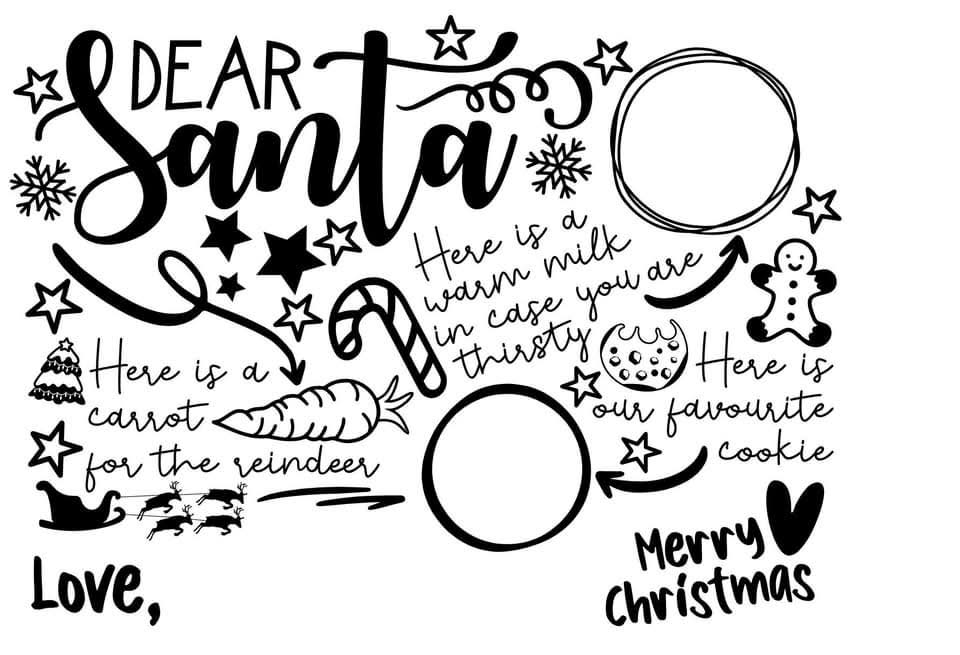 DEAR
Santa
Here is a
warm milk
in case you are
thirsty
Here is a
carrot
for the reindeer
Here is
our favourite
cookie
Love,
Merry
Christmas